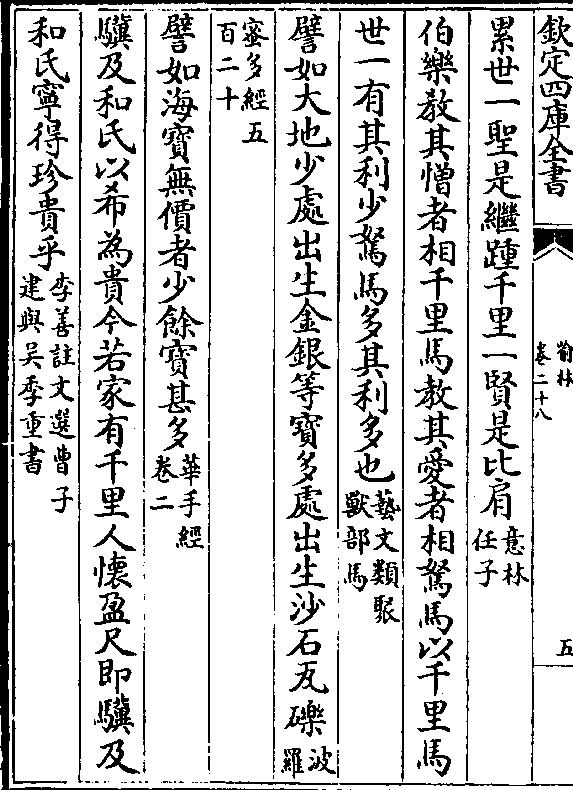 欽定四庫全書
喻林
卷二十八
五
累世一聖是繼踵千里一賢是比肩意林
任子
伯樂教其憎者相千里馬教其愛者相駑馬以千里馬
世一有其利少駑馬多其利多也藝文類聚
獸部馬
譬如大地少處出生金銀等寶多處出生沙石瓦礫波
羅
蜜多經五
百二十
譬如海寶無價者少餘寶甚多華手經
卷二
驥及和氏以希為貴今若家有千里人懷盈尺即驥及
和氏寧得珍貴乎李善註文選曹子
建與吳季重書